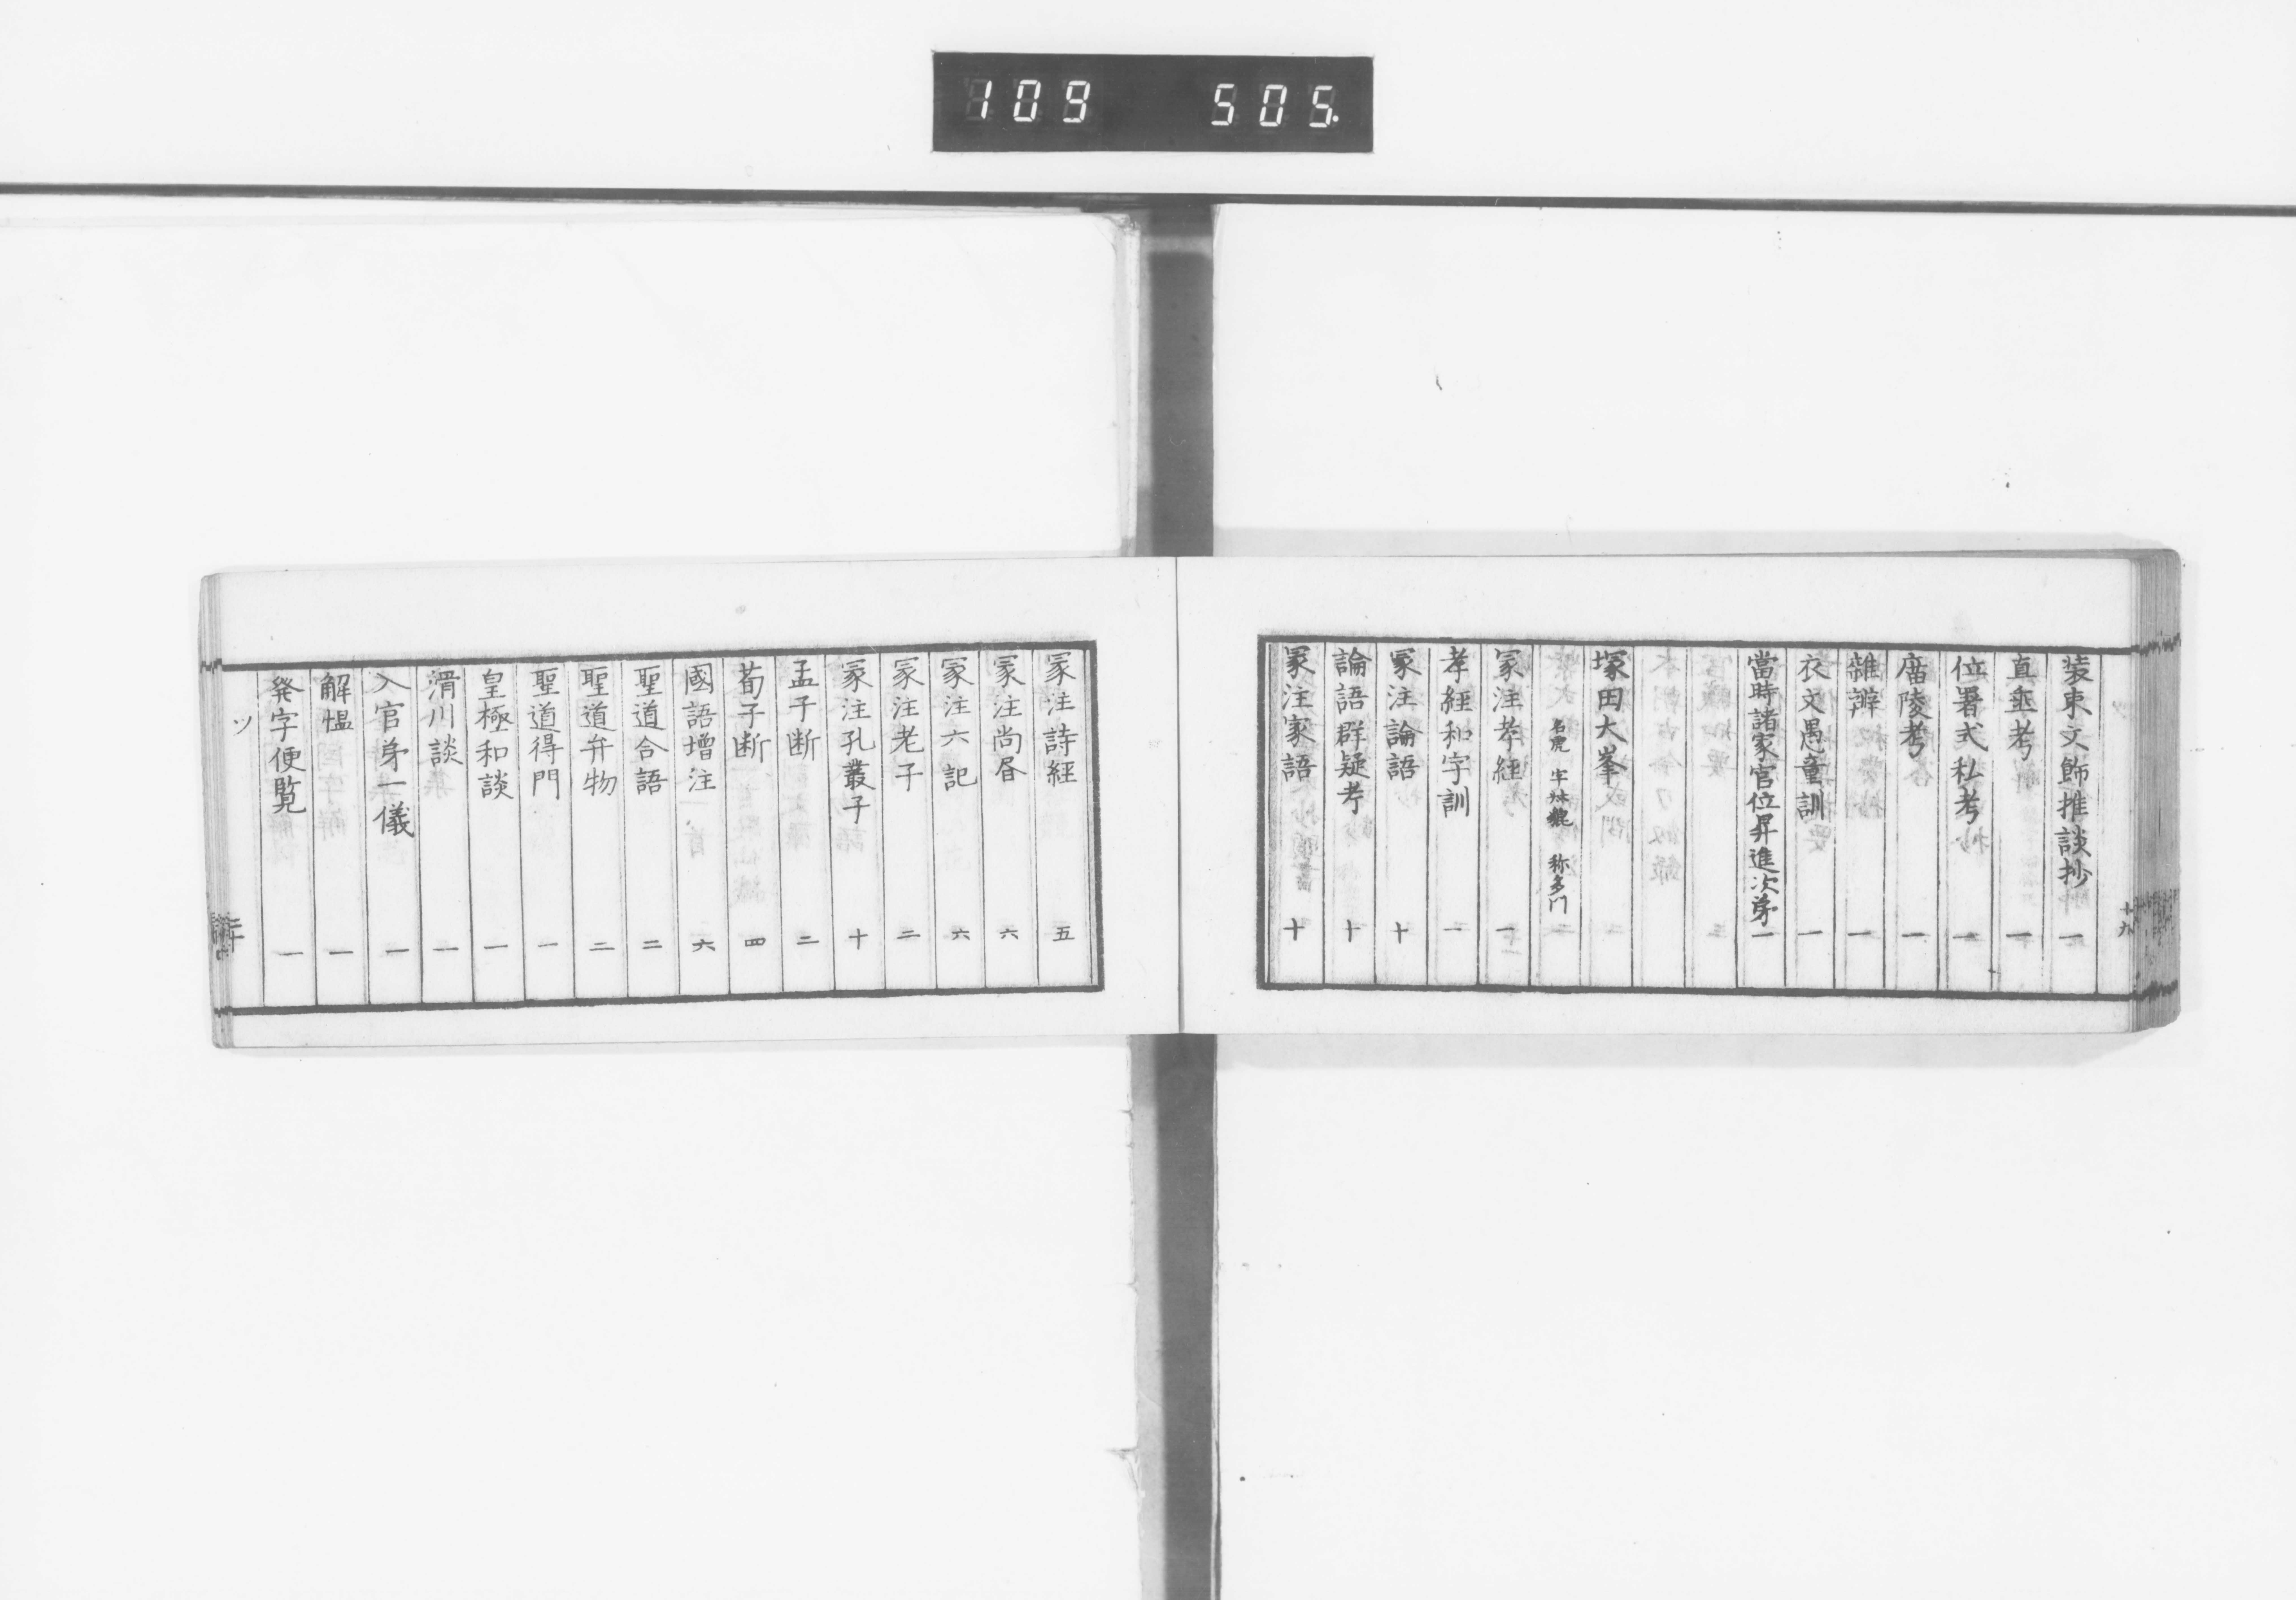 109 505.
装束文飾推談抄 一
直垂考 一
位署式私考 一
廣陵考 一
雑辨 一
衣文愚童訓 一
當時諸家官位昇進次第 一
塚田大峯
名虎 字叔貔 称多門
冢注孝経 一
孝経和字訓 一
冢注論語 十
論語群疑考 十
冢注家語 十
十九
冢注詩経 五
冢注尚書 六
冢注六記 六
冢注老子 二
冢注孔叢子 十
孟子断 二
荀子断 四
國語増注 六
聖道合語 二
聖道弁物 二
聖道得門 一
皇極和談 一
滑川談 一
入官第一儀 一
解慍 一
発字便覧 一
ツ